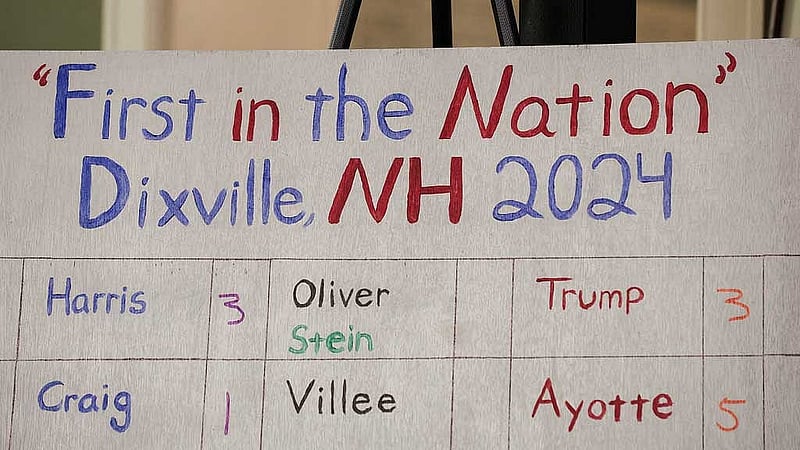 "First in the Nation"
Dixville, NH 2024
Harris 3 Oliver Trump 3
Stein
Craig 1 Villee Ayotte 5